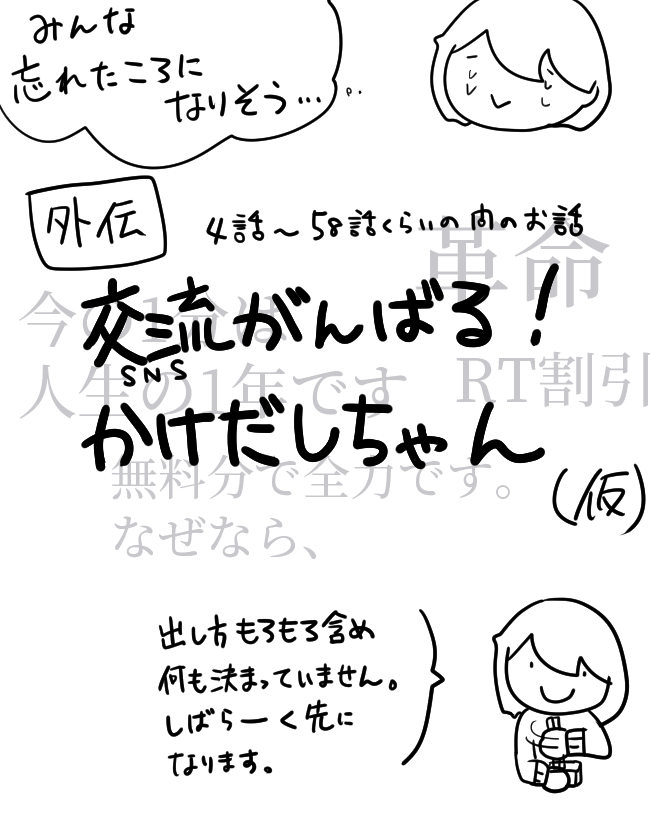 みんな
忘れたころに
なりそう…
外伝
4話～58話くらいの内のお話
革命
今の1分は
交流がんばる!
SNS
人生の1年です
RT割引
かけだしちゃん
無料分で全力です。
(仮)
なぜなら、
出し方もろもろ含め
何も決まっていません。
しばらーく先に
なります。